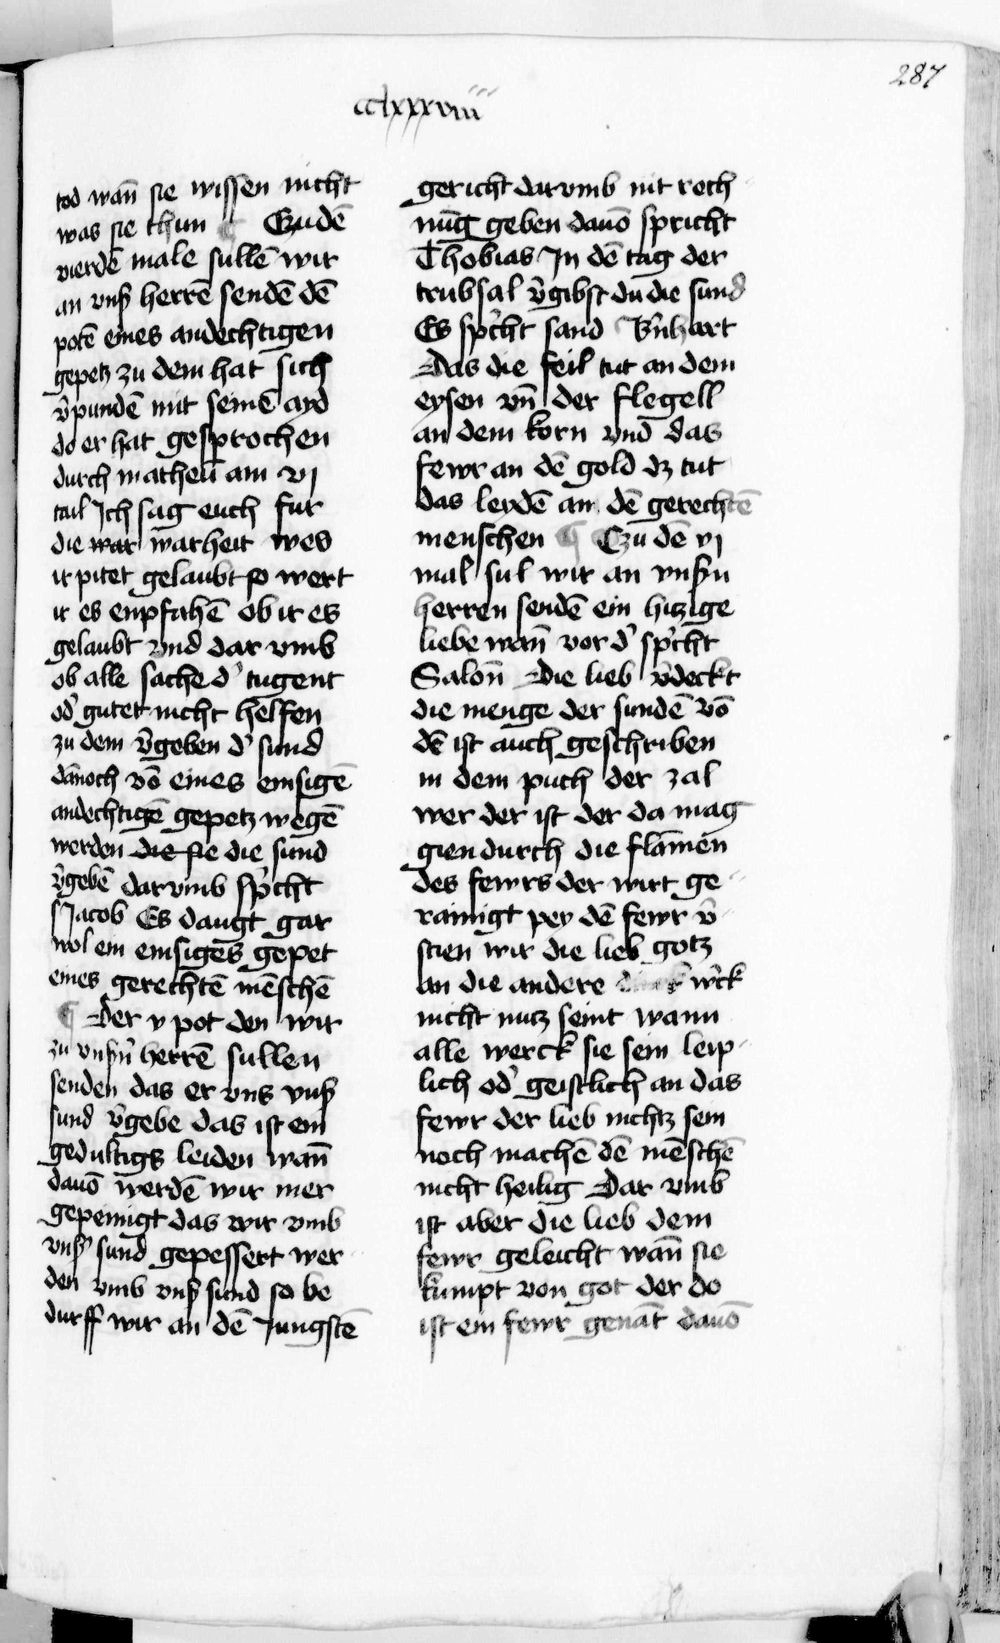 287
cclxxxviii
tod wañ sie wissen nicht
was sie thun ¶ Czu dē
vierdē male sullē wir
an vnsʼ herrē sendē dē
potē eines andechtigen
gepetz zu dem hat sich
v̾pundē mit seinē ayd
do er hat gesprochen
durch matheū am vj
tail Ich sag euch fur
die war warheit wes
ir pitet gelaubt so wert
ir es enpfahē ob ir es
gelaubt vnd dar vmb
ob alle sache d̾ tugent
od̾ gutet nicht helfen
zu dem v̾geben d̾ sund
dānoch vō eines emsigē
andechtigē gepetz wegē
werden die sie die sund
v̾gebē dar vmb sp̾cht
s Jacob Es daugt gar
wol ein emsiges gepet
eines gerechtē mēschē
¶ Der v pot den wir
zu vnsʼn herrē sullen
senden das er vns vnsʼ
sund v̾gebe das ist ein
gedultigs leiden wañ
dauō werdē wir mer
gepeinigt das wir vmb
vnsʼ sund gepessert wer
den vmb vnsʼ sund so be
durff wir an dē Jungstē
gericht dar vmb nit rech
nūg geben dauō spricht
Thobias In dē tag der
trubsal v̾gibst du die sund
Es sp̾cht sand B̾nhart
Das die feil tut an dem
eysen vñ der flegell
an dem korn vnd das
fewr an dē gold dz tut
das leydē an dē gerechtē
menschen ¶ Czu dē vj
mal sul wir an vnsʼn
herren sendē ein hitzige
liebe wañ vor d̾ sp̾cht
Saloñ Die lieb v̾deckt
die menge der sundē vō
dē ist auch geschriben
in dem puch der zal
wer der ist der da mag
gien durch die flāmen
des fewrs der wirt ge
rainigt pey dē fewr v̾
stien wir die lieb gotz
an die andere w̾ck
nicht nutz seint wann
alle werck sie sein leip
lich od̾ geistlich an das
fewr der lieb nichtz sein
noch machē dē mēschē
nicht heilig Dar vmb
ist aber die lieb dem
fewr geleicht wañ sie
kumpt von got der do
ist ein fewr genāt dauō